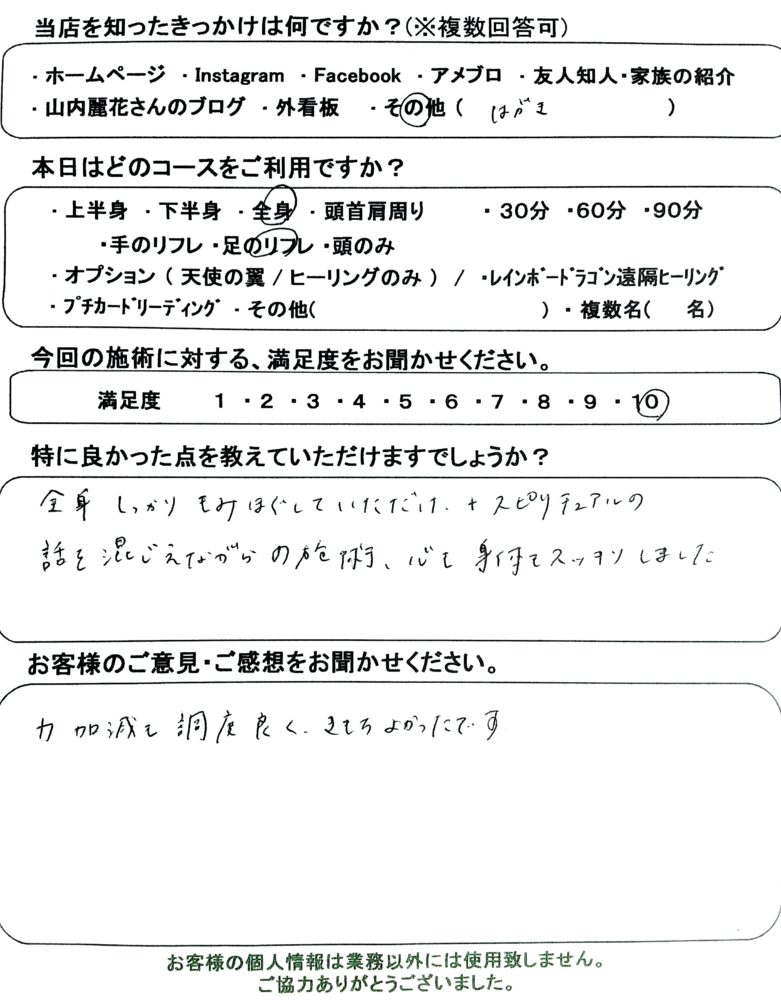 当店を知ったきっかけは何ですか？(※複数回答可)
・ホームページ ・Instagram ・Facebook ・アメブロ ・友人知人・家族の紹介
・山内麗花さんのブログ ・外看板 ・その他 ( はがき )
本日はどのコースをご利用ですか？
・上半身 ・下半身 ・全身 ・頭首肩周り ・30分 ・60分 ・90分
・手のリフレ ・足のリフレ ・頭のみ
・オプション ( 天使の翼 / ヒーリングのみ ) / ・レインボードラゴン遠隔ヒーリング
・プチカードリーディング ・その他( ) ・複数名( 名)
今回の施術に対する、満足度をお聞かせください。
満足度 1 ・2 ・3 ・4 ・5 ・6 ・7 ・8 ・9 ・10
特に良かった点を教えていただけますでしょうか？
全身 しっかり もみほぐしていただだけ、+ スピリチュアルの
話を混じえながらの施術、心も身体もスッキリしました
お客様のご意見・ご感想をお聞かせください。
力加減も調度良く、きもちよかったです
お客様の個人情報は業務以外には使用致しません。
ご協力ありがとうございました。